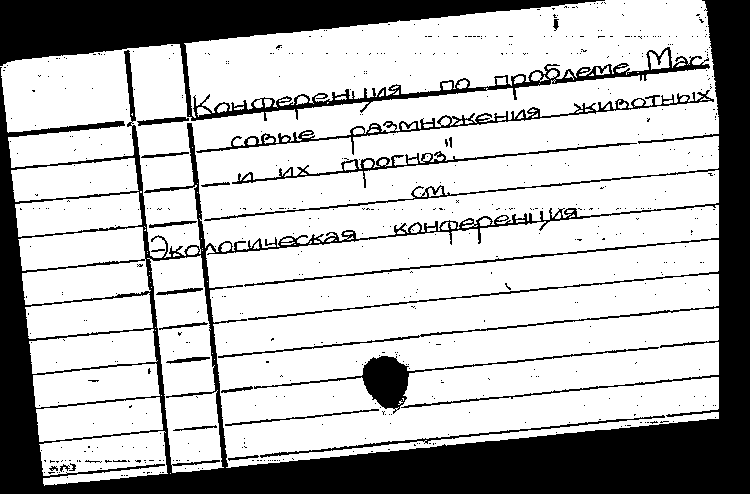 Конференция по проблеме „Мас
совые размножения животных
и их прогноз".
см.
Экологическая конференция